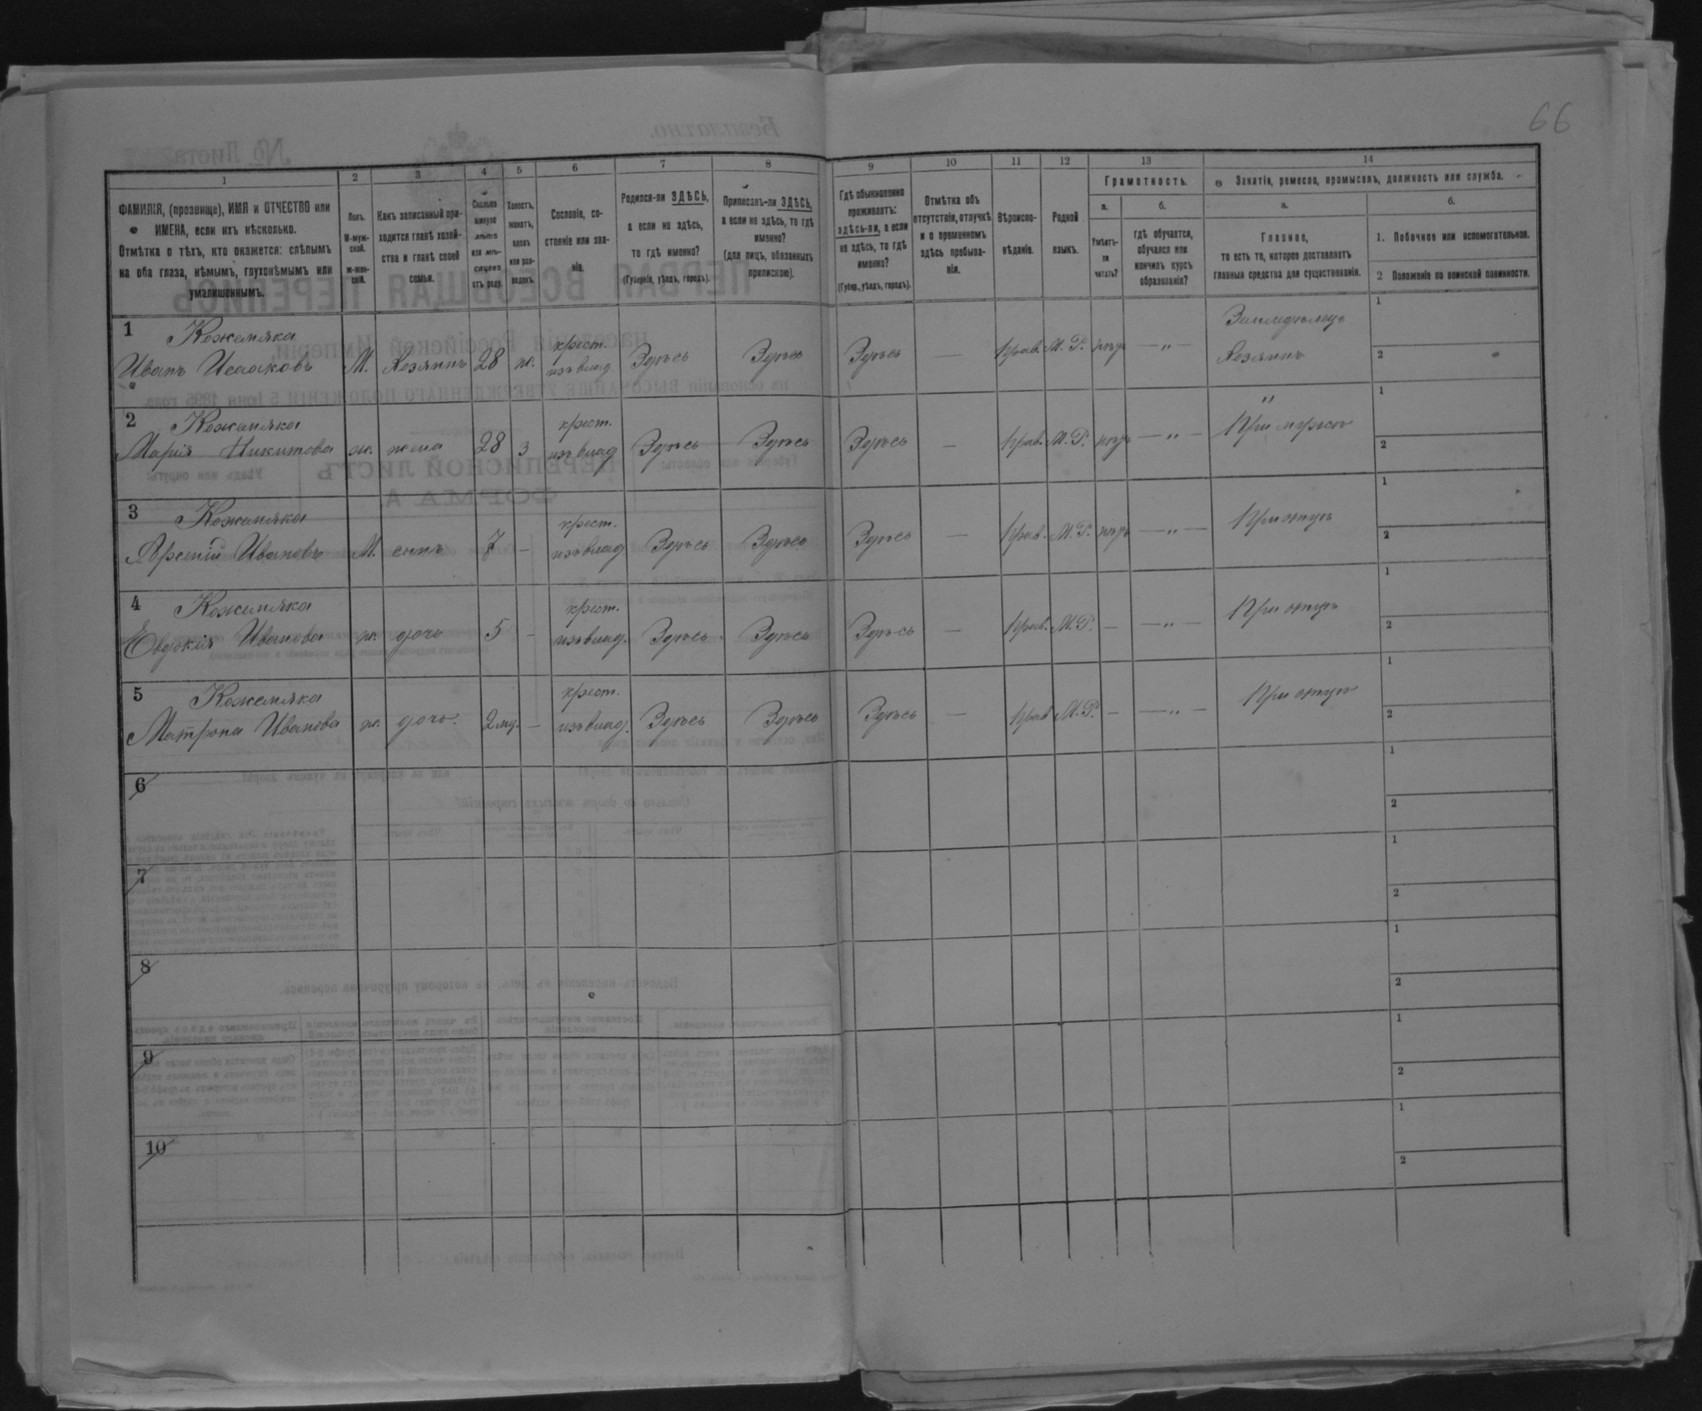 66
1
2
3
4
5
6
7
8
9
10
11
12
13
14
ФАМИЛІЯ, (прозвище), ИМЯ и ОТЧЕСТВО или
ИМЕНА, если ихъ нѣсколько.
Отмѣтка о тѣхъ, кто окажется: слѣпымъ
на оба глаза, нѣмымъ, глухонѣмымъ или
умалишеннымъ.
Полъ.
М-муж-
ской.
ж-жен-
скій.
Какъ записанный при-
ходится главѣ хозяй-
ства и главѣ своей
семьи.
Сколько
минуло
лѣтъ
или мѣ-
сяцевъ
отъ роду.
Холостъ,
женатъ,
вдовъ
или раз-
веденъ.
Сословіе, со-
стояніе или зва-
ніе.
Родился-ли ЗДѢСЬ,
а если не здѣсь,
то гдѣ именно?
(Губернія, уѣздъ, городъ).
Приписанъ-ли ЗДѢСЬ,
а если не здѣсь, то гдѣ
именно?
(для лицъ, обязанныхъ
припискою).
Гдѣ обыкновенно
проживаетъ:
здѣсь-ли, а если
не здѣсь, то гдѣ
именно?
(Губер., уѣздъ, городъ).
Отмѣтка объ
отсутствіи, отлучкѣ
и о временномъ
здѣсь пребыва-
ніи.
Вѣроиспо-
вѣданіе.
Родной
языкъ.
Грамотность.
а.
Умѣетъ-
ли
читать?
б.
гдѣ обучается,
обучался или
кончилъ курсъ
образованія?
Занятіе, ремесло, промыселъ, должность или служба.
а.
Главное,
то есть то, которое доставляетъ
главныя средства для существованія.
б.
1. Побочное или вспомогательное.
2 Положеніе по воинской повинности.
1 Кожемяка
Иванъ Исааковъ М. Хозяинъ 28 ж. крест. изъ влад. Здѣсь Здѣсь Здѣсь — Прав. М. Р. нѣтъ — „ — Земледѣлецъ Хозяинъ 1 2
2 Кожемяка
Марія Никитова ж. жена 28 з крест. изъ влад Здѣсь Здѣсь Здѣсь — Прав. М. Р. нѣтъ — „ — „ При мужѣ 1 2
3 Кожемяка
Арсеній Ивановъ М. сынъ 7 — крест. изъ влад Здѣсь Здѣсь Здѣсь — Прав. М. Р. нѣтъ — „ — При отцѣ 1 2
4 Кожемяка
Евдокія Иванова ж. дочь 5 — крест. изъ влад. Здѣсь Здѣсь Здѣсь — Прав. М. Р. — — „ — При отцѣ 1 2
5 Кожемяка
Матрона Иванова ж. дочь. — крест. изъ влад. Здѣсь Здѣсь Здѣсь — Прав М. Р. — — „ — При отцѣ 1 2
6 1 2
7 1 2
8 1 2
9 1 2
10 1 2